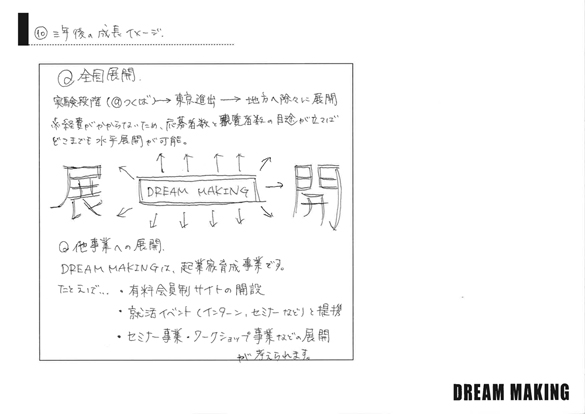 ⑩ 三年後の成長イメージ.
Q 全国展開.
実験段階(@つくば)→東京進出→地方へ除々に展開
※経費がかからないため、応募者数と観覧者数の目途が立てば
どこまでも水平展開が可能。
展 DREAM MAKING → 開
Q 他事業への展開.
DREAM MAKINGは、起業家育成事業です。
たとえば… ・有料会員制サイトの開設
・就活イベント(インターン、セミナーなど)と提携
・セミナー事業・ワークショップ事業などの展開
が考えられます。
DREAM MAKING